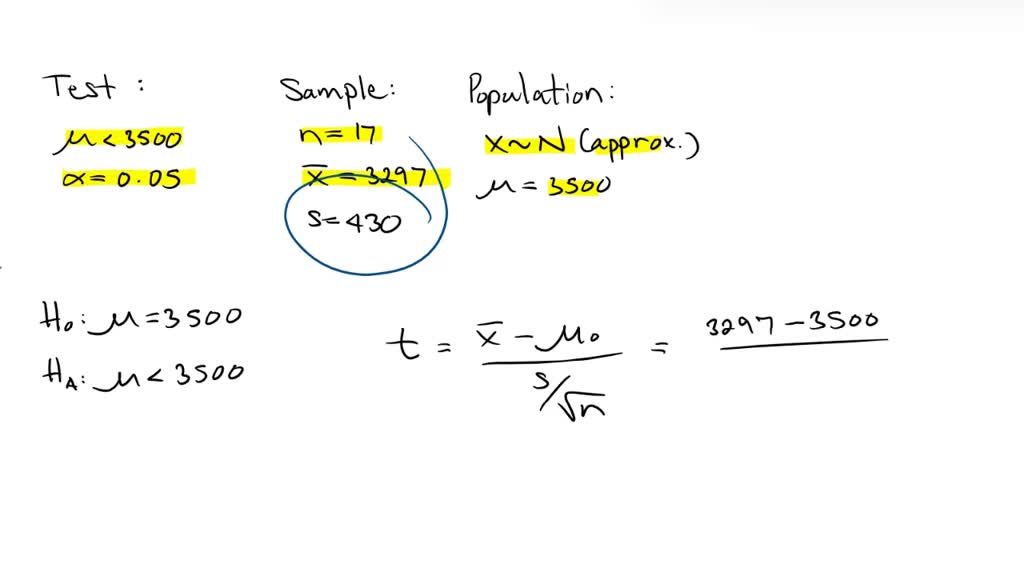 Test :
μ < 3500
α = 0.05
Sample:
n = 17
x̄ = 3297
s = 430
Population:
x ~ N (approx.)
μ = 3500
H₀: μ = 3500
Hₐ: μ < 3500
t = x̄ - μ₀ / s/√n = 3297 - 3500